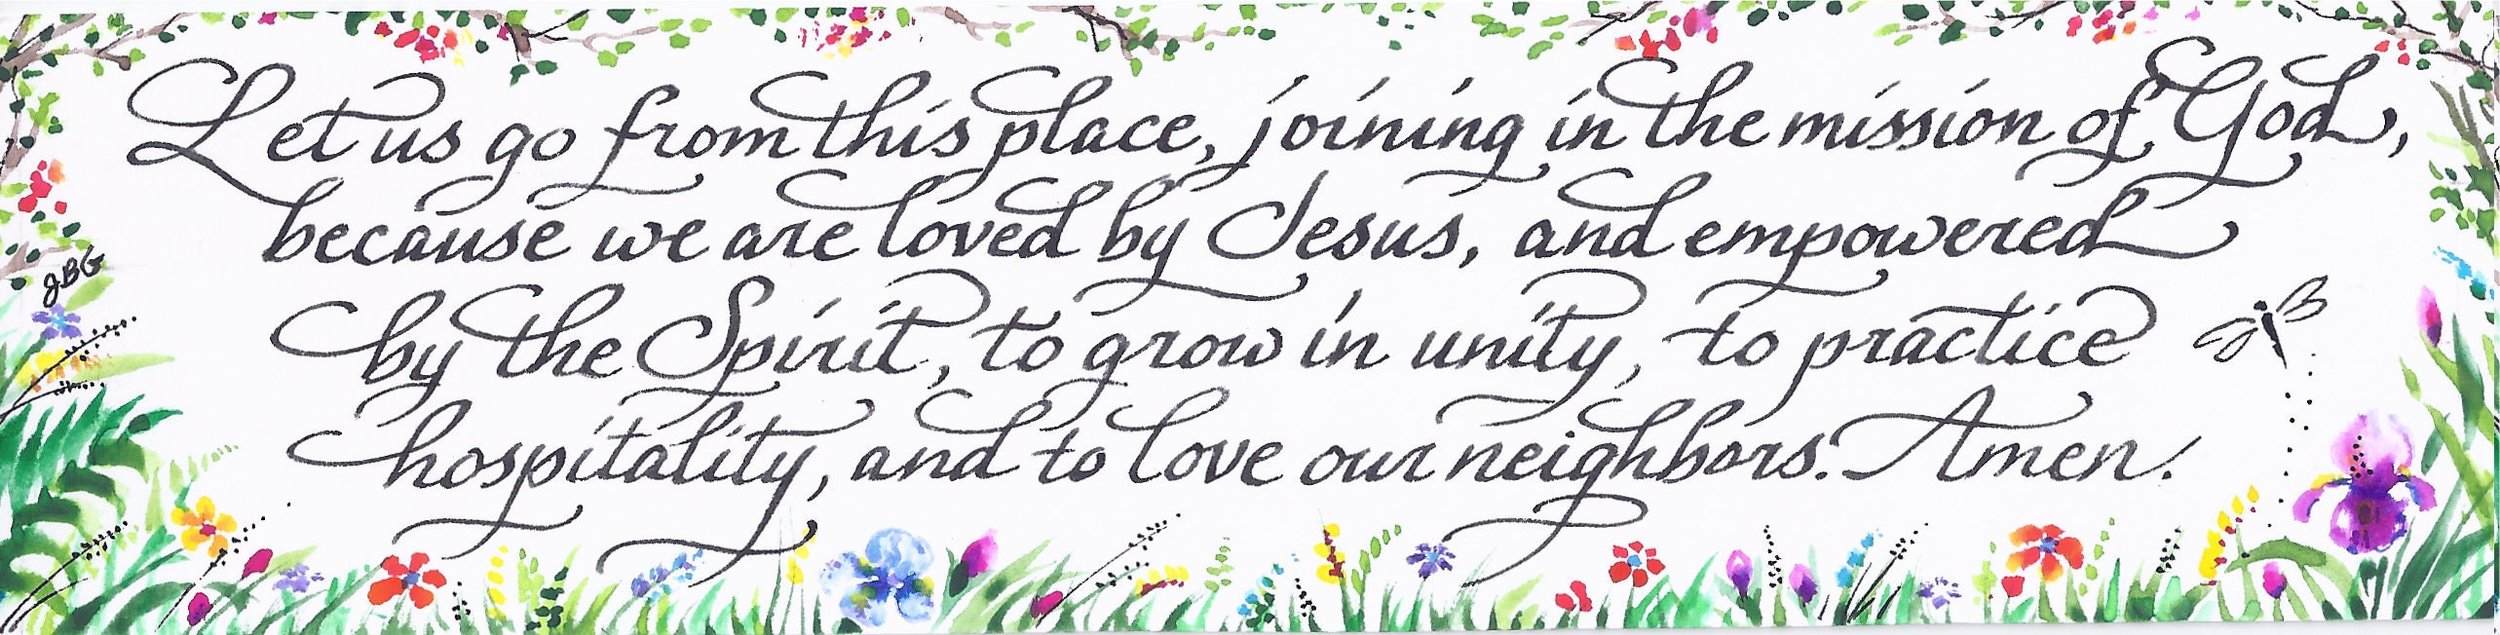 Let us go from this place, joining in the mission of God,
because we are loved by Jesus, and empowered
by the Spirit, to grow in unity, to practice
hospitality, and to love our neighbors. Amen.
JBG